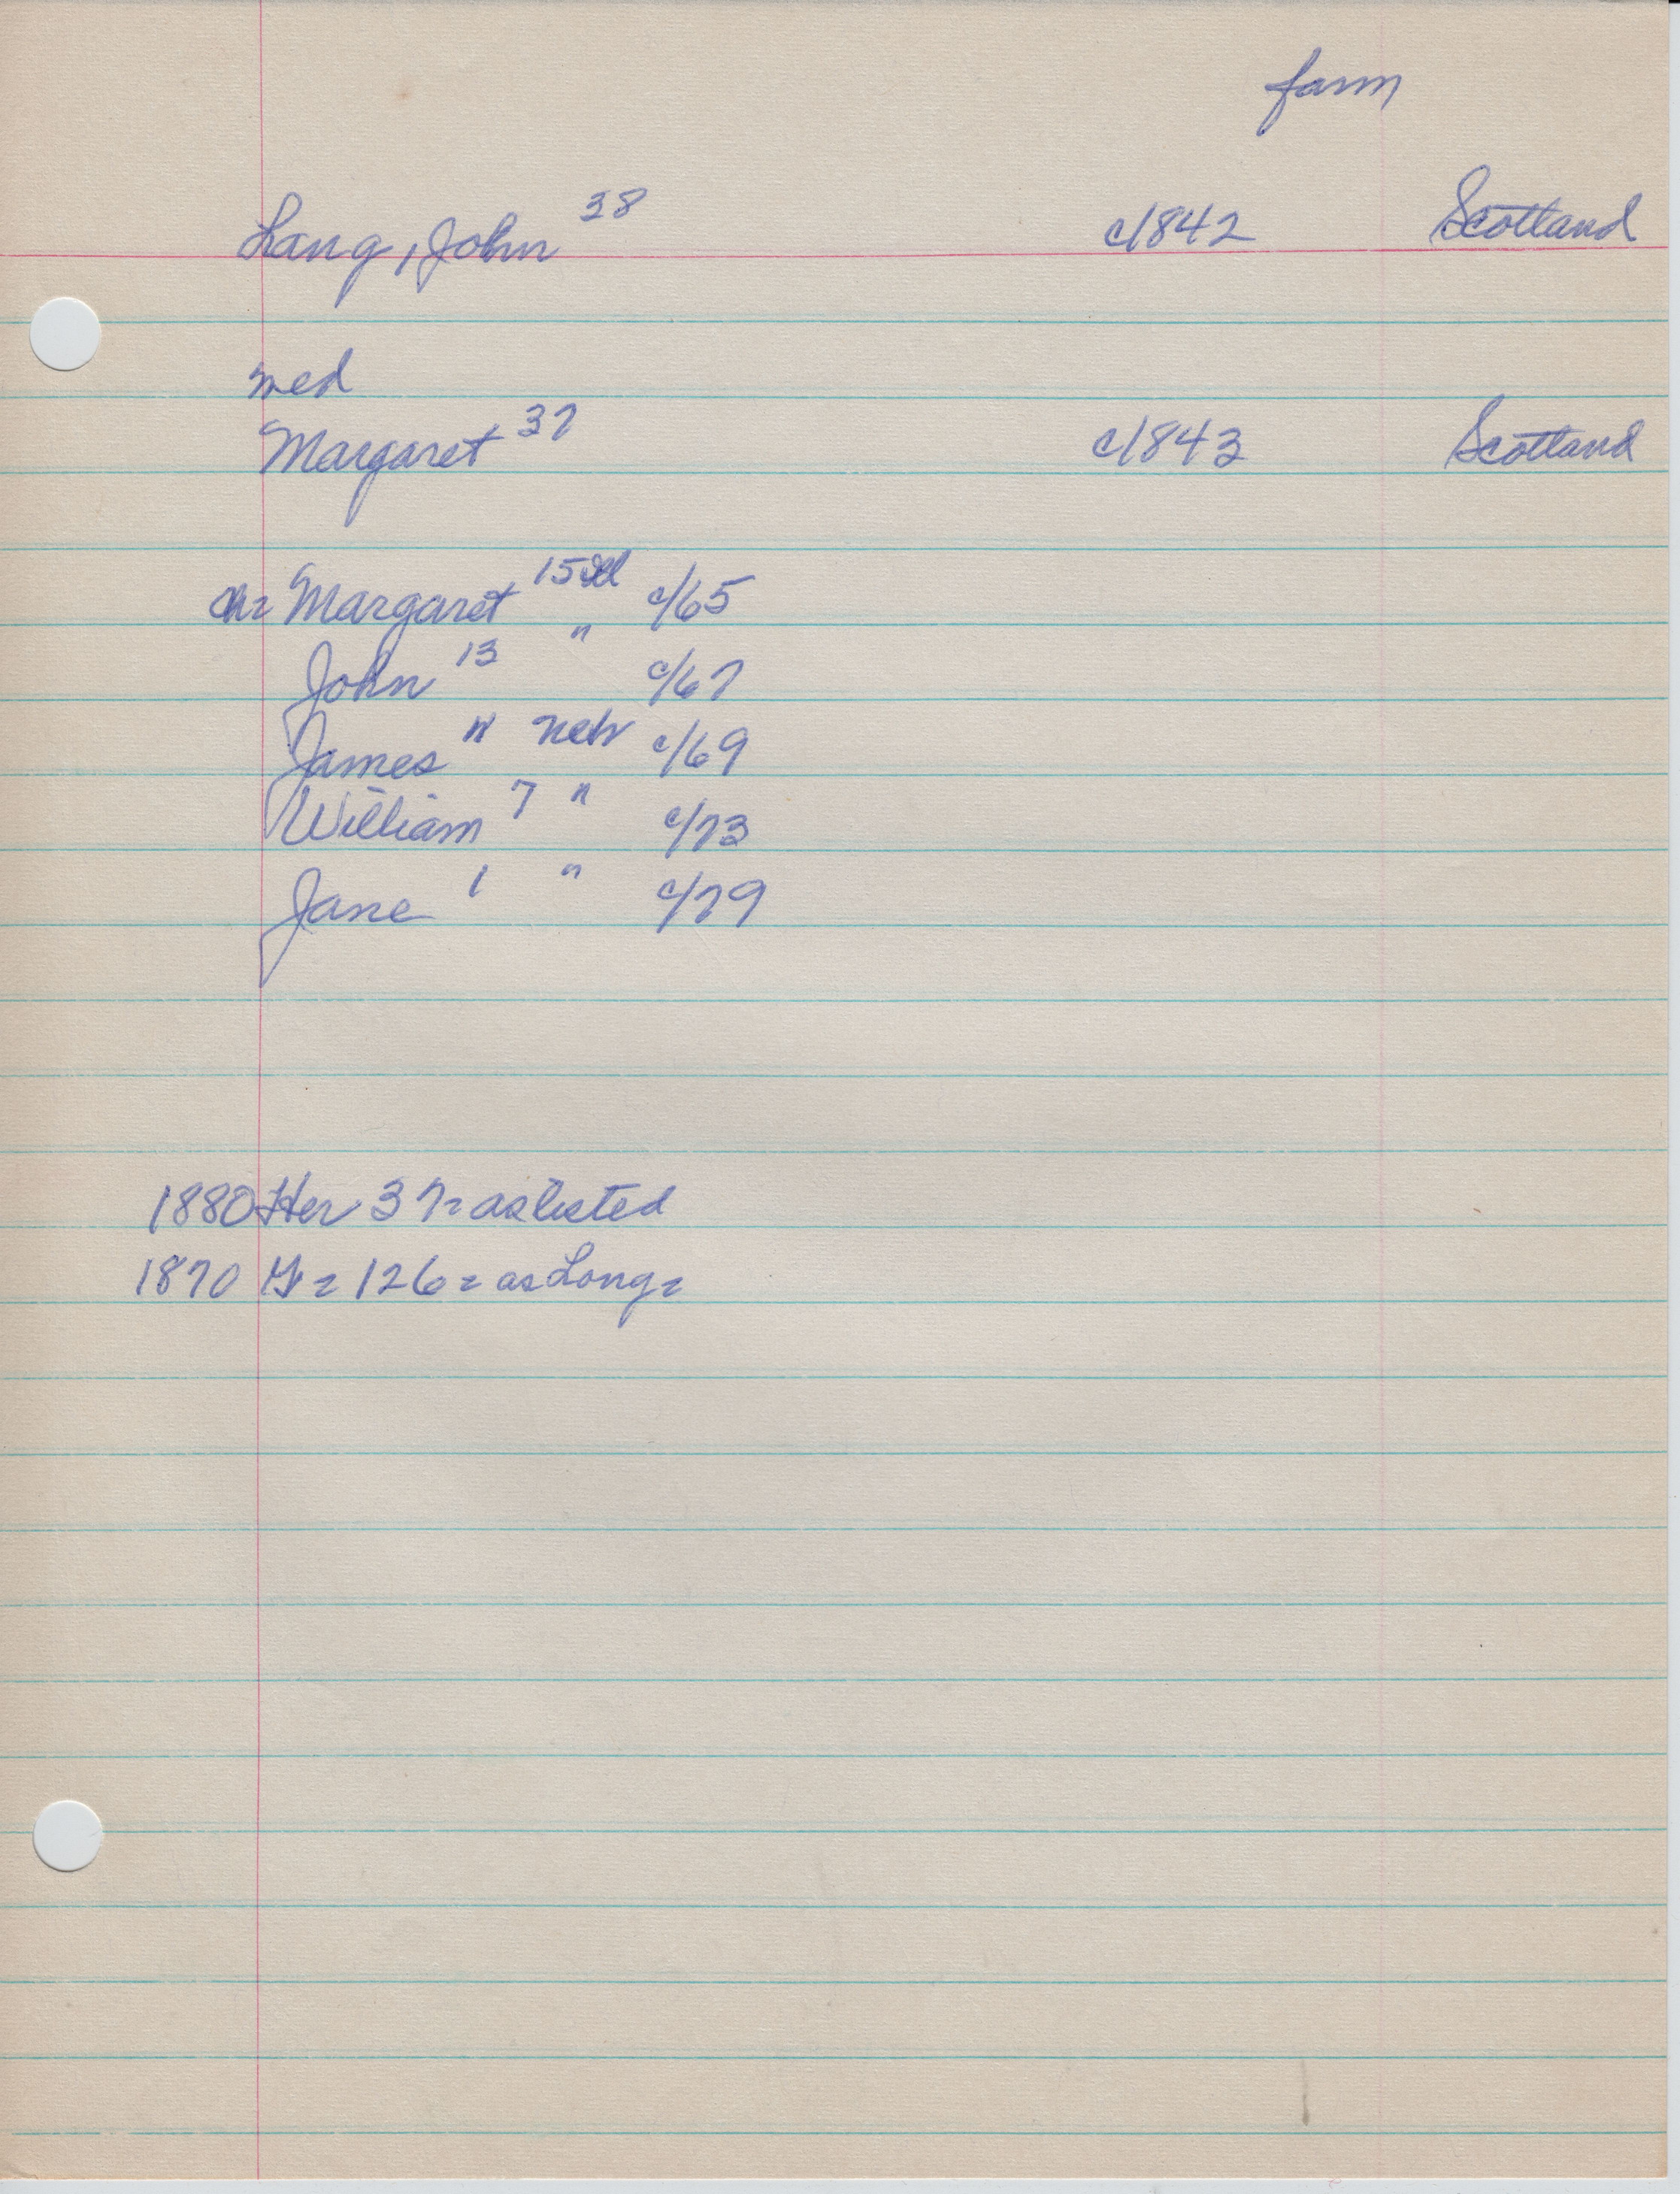 farm
Lang, John 38 c/1842 Scotland
med
Margaret 37 c/1843 Scotland
ch= Margaret 15 Ill c/65
John 13 " c/67
James 11 Neb c/69
William 7 " c/73
Jane 1 " c/79
1880 Her 37= as listed
1870 = 126= as Long=